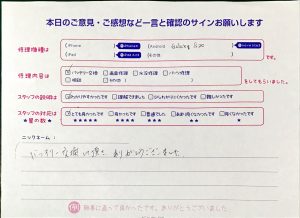 本日のご意見・ご感想など一言と確認のサインお願いします
修理機種は
iPhone
Android
Galaxy S20
iPad
その他
です。
修理内容は
バッテリー交換 画面修理 水没修理
その他
をしてもらいました。
スタッフの説明は
わかりやすかったです 理解できました わかりにくかったです 難しかったです
スタッフの対応は
★星の数★
とても良かったです 良かったです 普通でした
★★★★★ ★★★★ ★★★ ★★ ★
ニックネーム:
バッテリー交換
ありがとうございました
無事に直って良かったです。ありがとうございました。